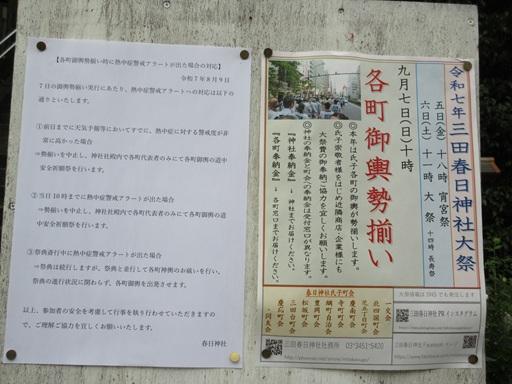 【各町御輿勢揃い時に熱中症警戒アラートが出た場合の対応】
令和7年8月9日
7日の御輿勢揃い実行にあたり、熱中症警戒アラートへの対応は以下の
通りといたします。
①前日までに天気予報等においてすでに、熱中症に対する警戒度が非
常に高かった場合
⇒勢揃いを中止し、神社社殿内で各町代表者のみにて各町御輿の道中
安全祈願祭を行います。
②当日10時までに熱中症警戒アラートが出た場合
⇒勢揃いを中止し、神社社殿内で各町代表者のみにて各町御輿の道中
安全祈願祭を行います。
③祭典斎行中に熱中症警戒アラートが出た場合
⇒祭典は続行しますが、祭典と並行して各町神輿のお祓いを行い、
祭典の進行状況に関わらず、各町御輿を出発させます。
以上、参加者の安全を考慮して行事を執り行わせていただきますの
で、ご理解ご協力を宜しくお願いいたします。
春日神社
令和七年 三田春日神社大祭
五日(金) 十八時 宵宮祭
六日(土) 十一時 大祭 十四時 長寿祭
九月七日(日)十時
各町御輿勢揃い
◎本年は氏子各町の御輿が勢揃いします。
◎氏子崇敬者をはじめ近隣商店・企業様にも
大祭費の御奉納ご協力を宜しくお願いします。
◎神社の奉納金と町会への奉納金は受付窓口が異なります。
『神社奉納金』→神社までお届けください。
『各町奉納金』→各町窓口までお届けください。
春日神社氏子町会
一文会
北四国町会
三田春日神社社務所 03-3451-5420
大祭情報はSNSでも発信します
三田春日神社 PR インスタグラム